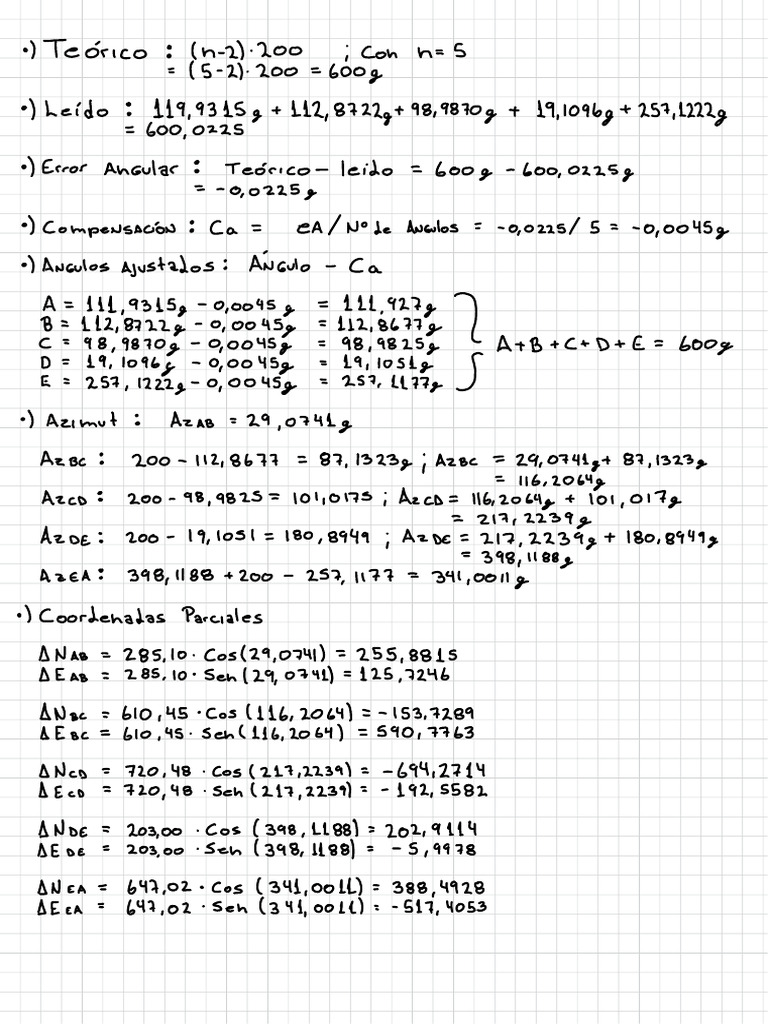 •) Teórico : (n-2)·200 ; con n=5
= (5-2)·200 = 600g
•) Leído : 119,9315g + 112,8722g + 98,9870g + 19,1096g + 257,1222g
= 600,0225
•) Error Angular : Teórico - leido = 600g - 600,0225g
= -0,0225g
•) Compensación : Ca = eA/Nº de Angulos = -0,0225/5 = -0,0045g
•) Angulos Ajustados : Ángulo - Ca
A = 111,9315g - 0,0045g = 111,927g
B = 112,8722g - 0,0045g = 112,8677g
C = 98,9870g - 0,0045g = 98,9825g A+B+C+D+E = 600g
D = 19,1096g - 0,0045g = 19,1051g
E = 257,1222g - 0,0045g = 257,1177g
•) Azimut : AzAB = 29,0741g
AzBC : 200 - 112,8677 = 87,1323g ; AzBC = 29,0741g + 87,1323g
= 116,2064g
AzCD : 200 - 98,9825 = 101,0175 ; AzCD = 116,2064g + 101,017g
= 217,2239g
AzDE : 200 - 19,1051 = 180,8949 ; AzDE = 217,2239g + 180,8949g
= 398,1188g
AzEA : 398,1188 + 200 - 257,1177 = 341,0011g
•) Coordenadas Parciales
ΔNAB = 285,10 · Cos(29,0741) = 255,8815
ΔEAB = 285,10 · Sen(29,0741) = 125,7246
ΔNBC = 610,45 · Cos(116,2064) = -153,7289
ΔEBC = 610,45 · Sen(116,2064) = 590,7763
ΔNCD = 720,48 · Cos(217,2239) = -694,2714
ΔECD = 720,48 · Sen(217,2239) = -192,5582
ΔNDE = 203,00 · Cos(398,1188) = 202,9114
ΔEDE = 203,00 · Sen(398,1188) = -5,9978
ΔNEA = 647,02 · Cos(341,0011) = 388,4928
ΔEEA = 647,02 · Sen(341,0011) = -517,4053